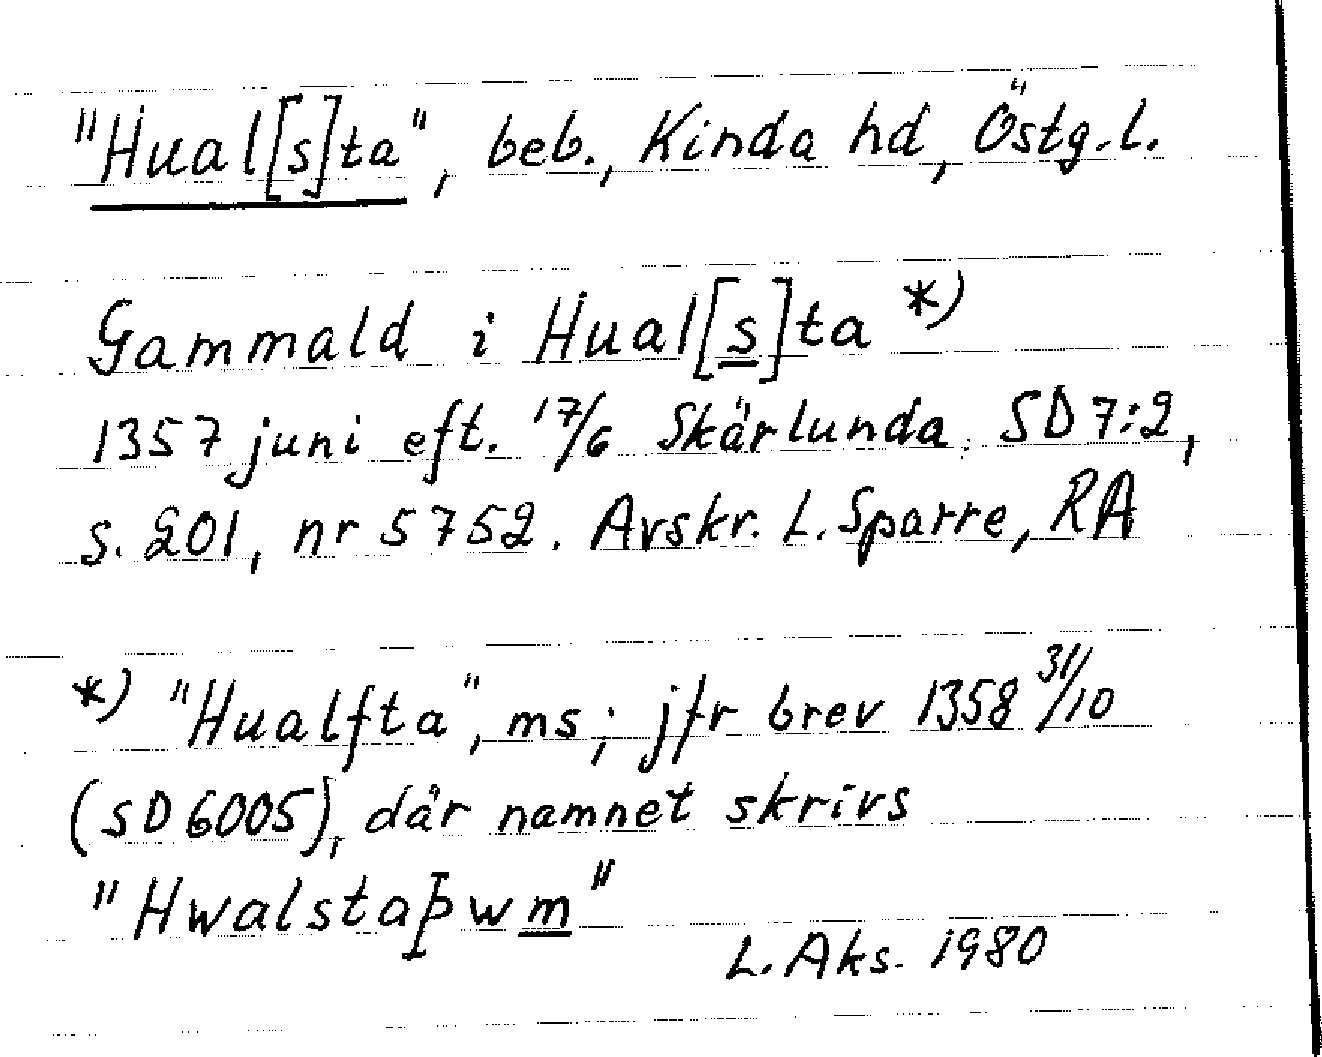 "Hual[s]ta", beb., Kinda hd, Östg.l.
Gammald i Hual[s]ta *)
1357 juni eft. 17/6 Skärlunda. SD 7:2,
s. 201, nr 5752. Avskr. L. Sparre, RA
*) "Hualfta", ms; jfr brev 1358 31/10
(SD 6005), där namnet skrivs
"Hwalstaþwm"
L. Aks. 1980